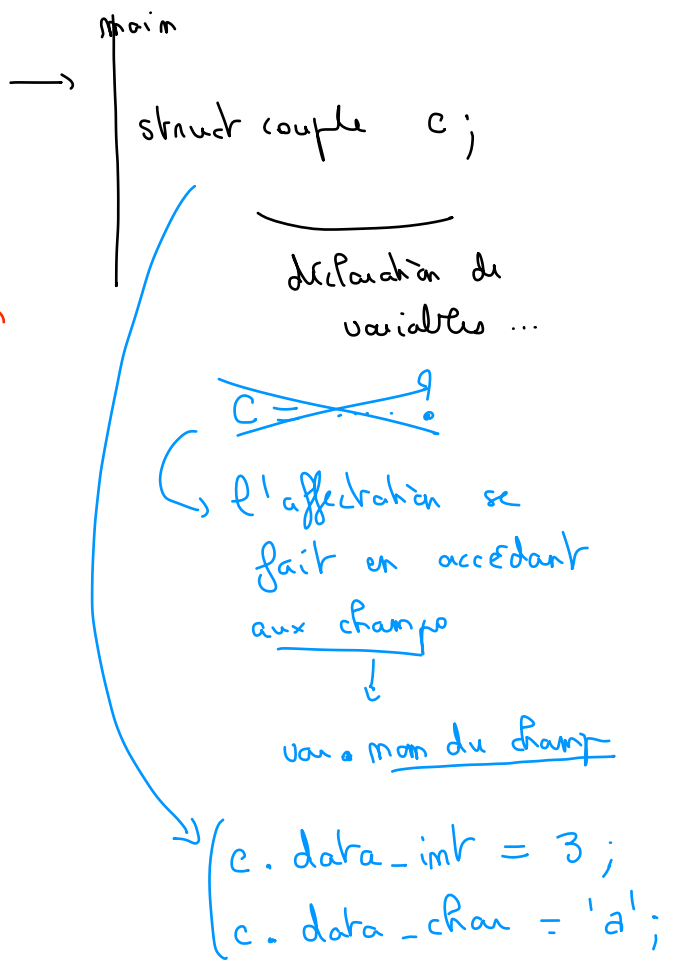 main
struct couple c;
déclaration de
variables ...
C = ..... ?
l'affectation se
fait en accédant
aux champs
var. nom du champ
c. data_int = 3;
c. data_char = 'a';